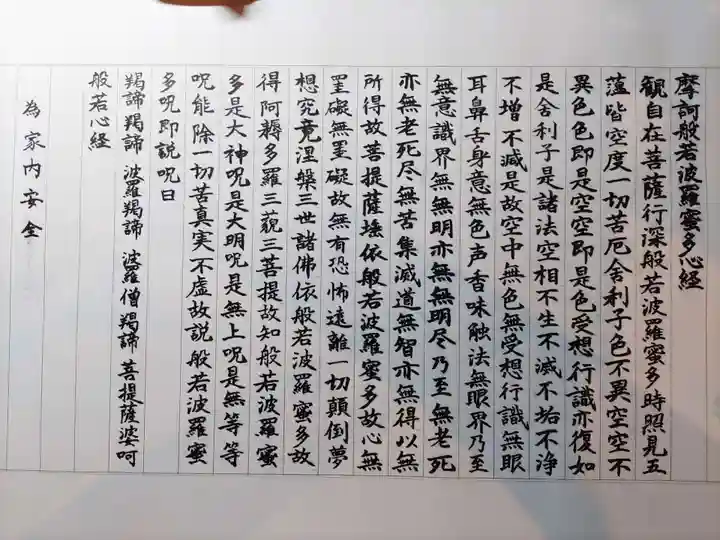 摩訶般若波羅蜜多心経
観自在菩薩行深般若波羅蜜多時照見五
薀皆空度一切苦厄舍利子色不異空空不
異色色即是空空即是色受想行識亦復如
是舍利子是諸法空相不生不滅不垢不浄
不増不減是故空中無色無受想行識無眼
耳鼻舌身意無色声香味触法無眼界乃至
無意識界無無明亦無無明尽乃至無老死
亦無老死尽無苦集滅道無智亦無得以無
所得故菩提薩埵依般若波羅蜜多故心無
罣礙無罣礙故無有恐怖遠離一切顛倒夢
想究竟涅槃三世諸佛依般若波羅蜜多故
得阿耨多羅三藐三菩提故知般若波羅蜜
多是大神呪是大明呪是無上呪是無等等
呪能除一切苦真実不虚故説般若波羅蜜
多呪即説呪曰
羯諦羯諦 波羅羯諦 波羅僧羯諦 菩提薩婆呵
般若心経
為家内安全